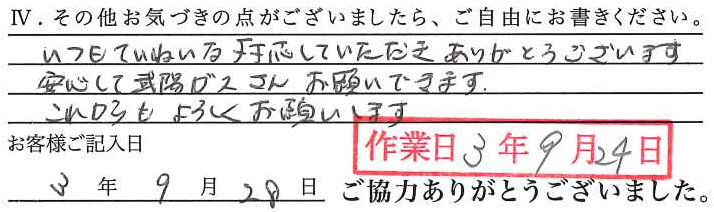 Ⅳ．その他お気づきの点がございましたら、ご自由にお書きください。
いつもていねいな対応していただき ありがとうございます
安心して武陽ガスさん お願いできます.
これからも よろしくお願いします
お客様ご記入日
作業日 3 年 9 月 24 日
3 年 9 月 28 日 ご協力ありがとうございました。